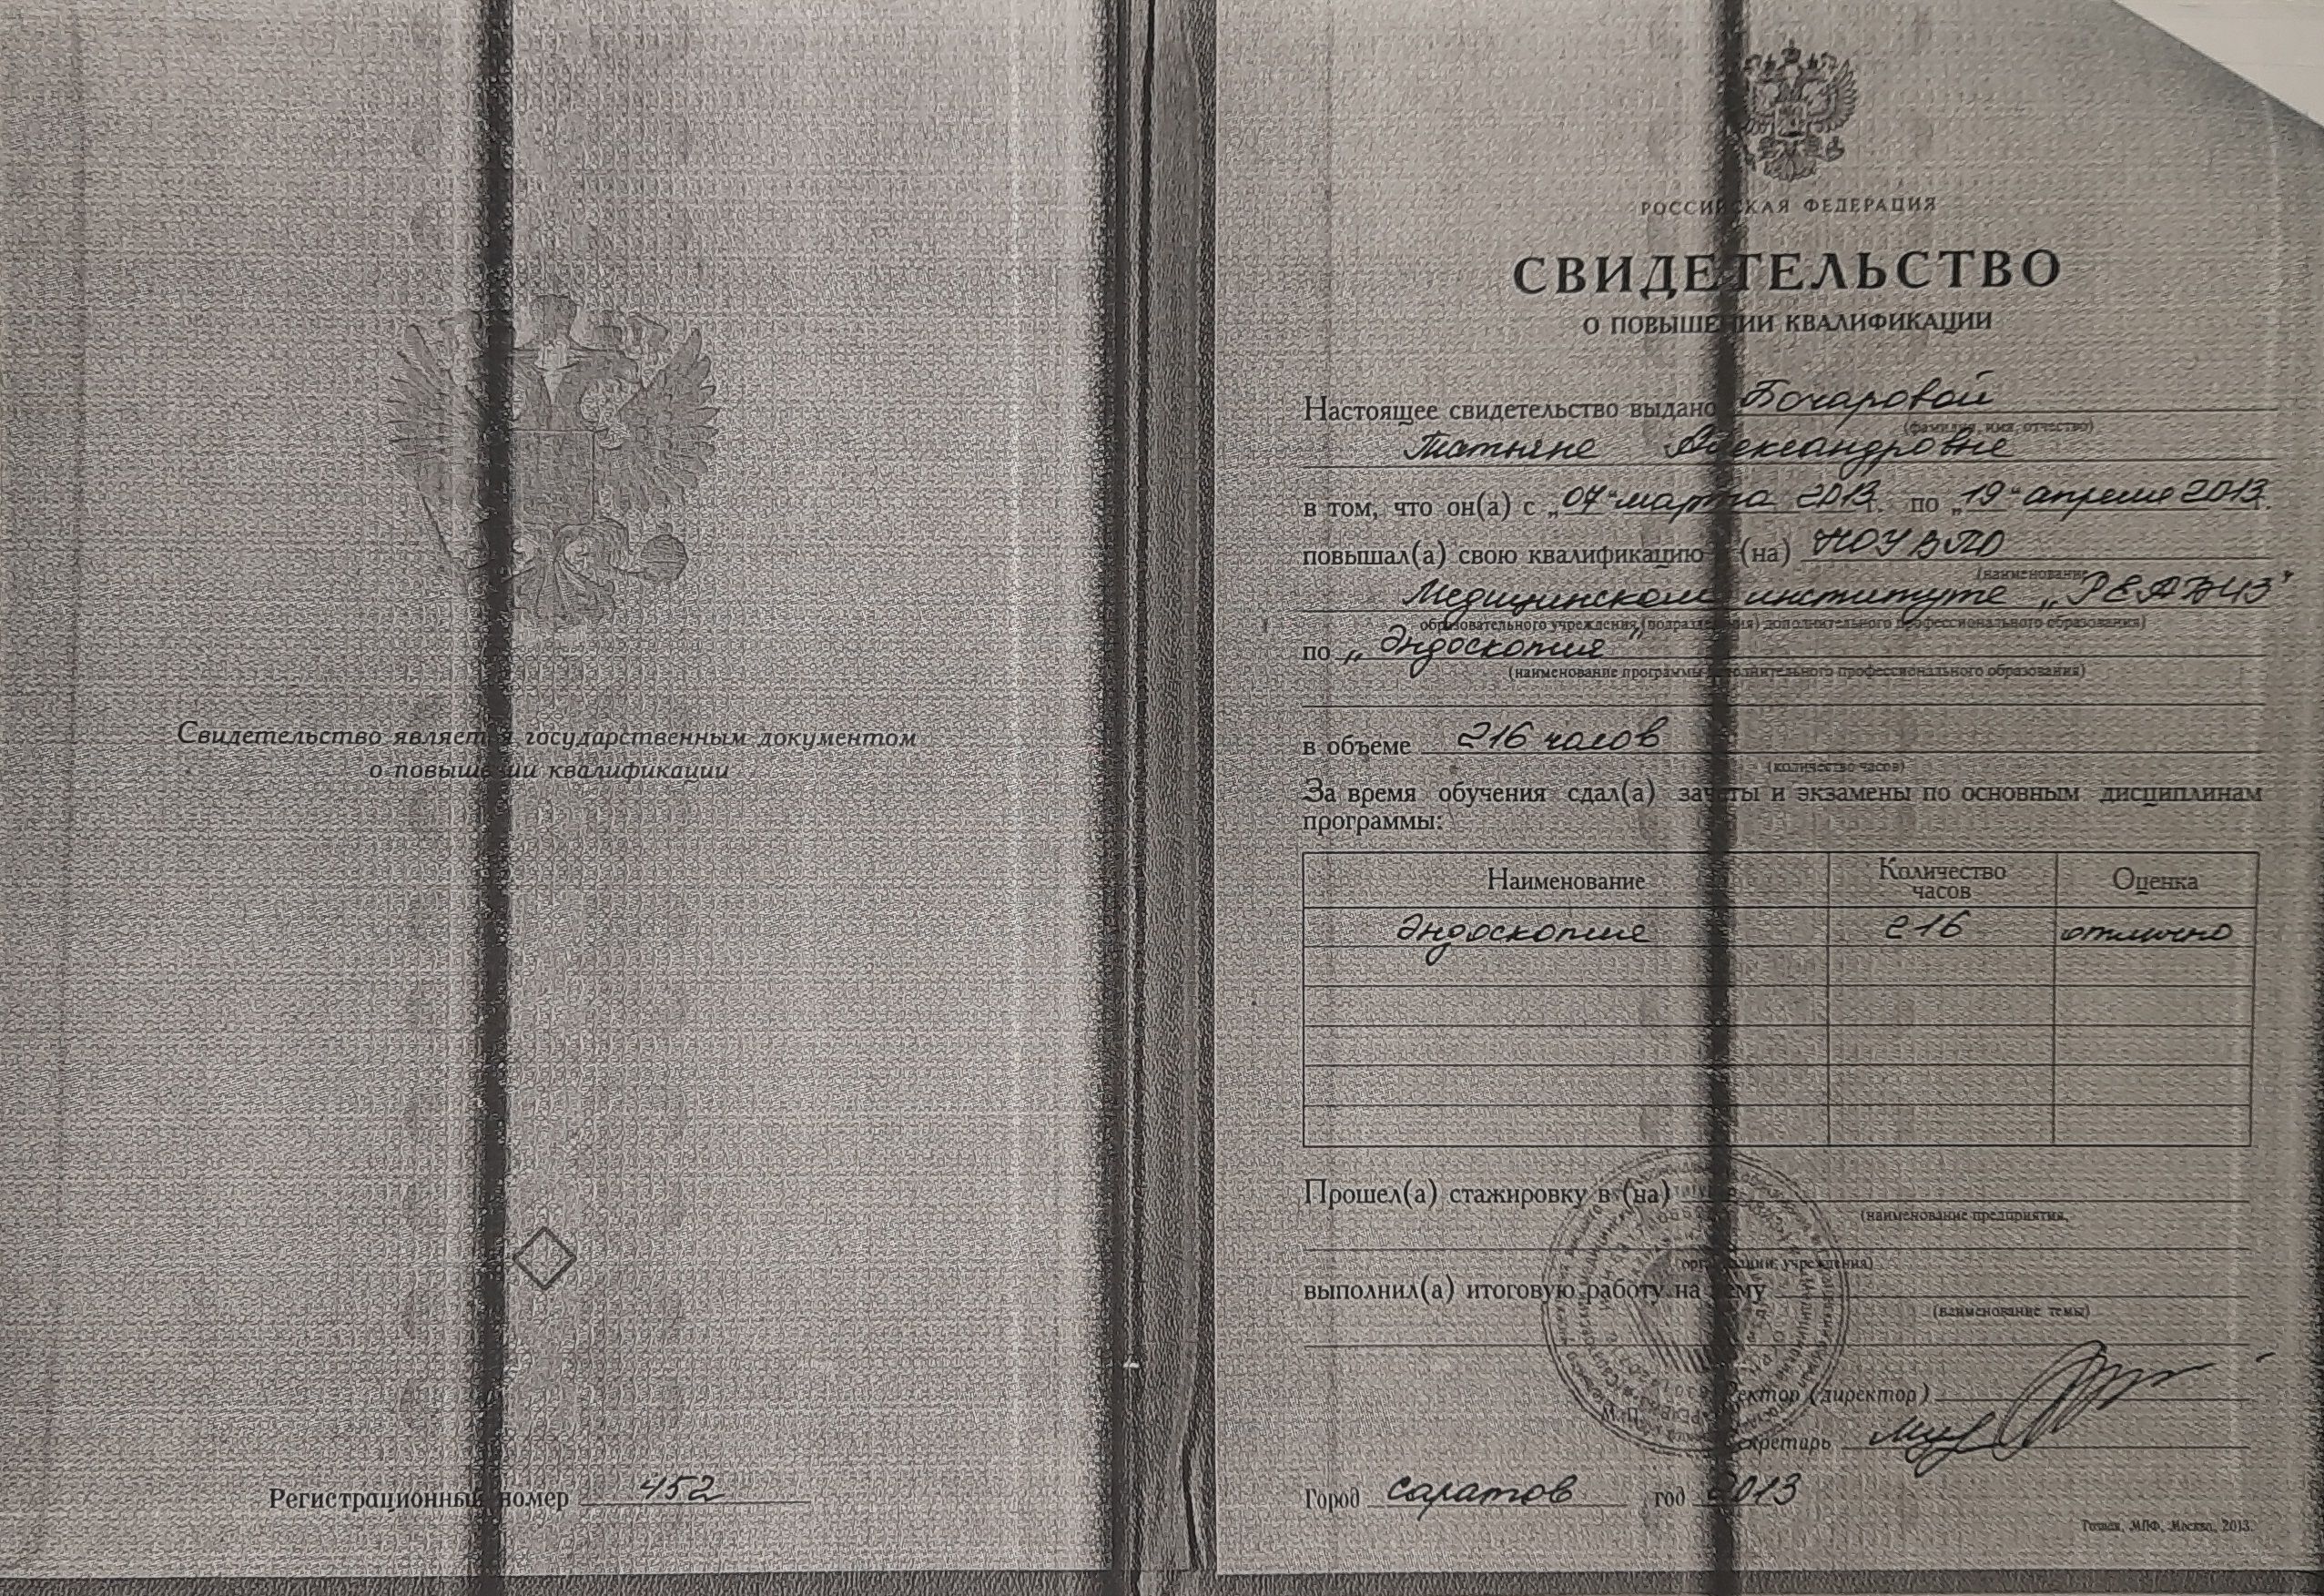 Свидетельство является государственным документом
о повышении квалификации
Регистрационный номер 452
РОССИЙСКАЯ ФЕДЕРАЦИЯ
СВИДЕТЕЛЬСТВО
О ПОВЫШЕНИИ КВАЛИФИКАЦИИ
Настоящее свидетельство выдано Бочаровой
(фамилия, имя, отчество)
Татьяне Александровне
в том, что он(а) с „07" марта 2013г. по „19" апреля 2013г.
повышал(а) свою квалификацию (на) НОУ ВПО
(наименование
Медицинском институте „РЕАВИЗ"
образовательного учреждения (подразделения) дополнительного профессионального образования)
по „Эндоскопия"
(наименование программы дополнительного профессионального образования)
в объеме 216 часов
(количество часов)
За время обучения сдал(а) зачеты и экзамены по основным дисциплинам
программы:
Наименование Количество часов Оценка
Эндоскопия 216 отлично
Прошел(а) стажировку в (на)
(наименование предприятия,
организации, учреждения)
выполнил(а) итоговую работу на тему
(наименование темы)
Ректор (директор)
Секретарь
Город Саратов год 2013
Гознак, МПФ, Москва, 2013.